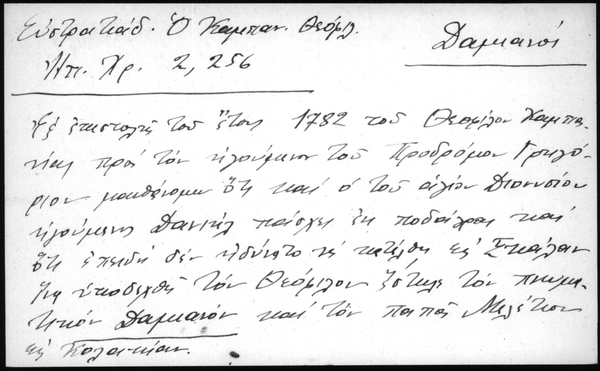 Εὐστρατιάδ. Ὁ Καμπαν. Θεόφιλ.
Δαμιανοί
Ἠπ. Χρ. 2, 256
Ἐξ ἐπιστολῆς τοῦ ἔτους 1782 τοῦ Θεοφίλου Καμπα-
νίας πρὸς τὸν ἡγούμενον τοῦ Προδρόμου Γρηγό-
ριον μανθάνομεν ὅτι καὶ ὁ τοῦ ἁγίου Διονυσίου
ἡγούμενος Δανιὴλ πάσχει ἐκ ποδάγρας καὶ
ὅτι ἐπειδὴ δὲν ἠδύνατο νὰ κατέλθῃ εἰς Σκάλαν
ἵνα ὑποδεχθῇ τὸν Θεόφιλον ἔστειλε τὸν πνευμα-
τικὸν Δαμιανὸν καὶ τὸν παπᾶ Μελέτιον
εἰς Κολακιάν.